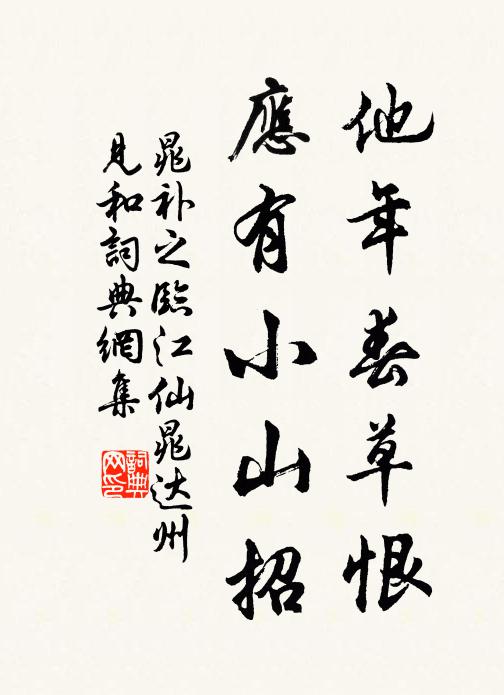 他年春草恨
應有小山招
晁补之臨江仙晁达州
見和詞典網集
詞典网印